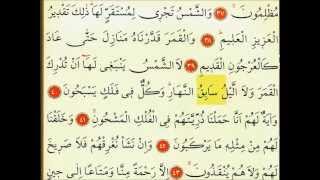 مُظْلِمُونَ ﴿٣٧﴾ وَالشَّمْسُ تَجْرِي لِمُسْتَقَرٍّ لَهَا ذَلِكَ تَقْدِيرُ
الْعَزِيزِ الْعَلِيمِ ﴿٣٨﴾ وَالْقَمَرَ قَدَّرْنَاهُ مَنَازِلَ حَتَّى عَادَ
كَالْعُرْجُونِ الْقَدِيمِ ﴿٣٩﴾ لَا الشَّمْسُ يَنْبَغِي لَهَا أَنْ تُدْرِكَ
الْقَمَرَ وَلَا الَّيْلُ سَابِقُ النَّهَارِ وَكُلٌّ فِي فَلَكٍ يَسْبَحُونَ ﴿٤٠﴾
وَآيَةٌ لَهُمْ أَنَّا حَمَلْنَا ذُرِّيَّتَهُمْ فِي الْفُلْكِ الْمَشْحُونِ ﴿٤١﴾ وَخَلَقْنَا
لَهُمْ مِنْ مِثْلِهِ مَا يَرْكَبُونَ ﴿٤٢﴾ وَإِنْ نَشَأْ نُغْرِقْهُمْ فَلَا صَرِيخَ
لَهُمْ وَلَا هُمْ يُنْقَذُونَ ﴿٤٣﴾ إِلَّا رَحْمَةً مِنَّا وَمَتَاعًا إِلَى حِينٍ